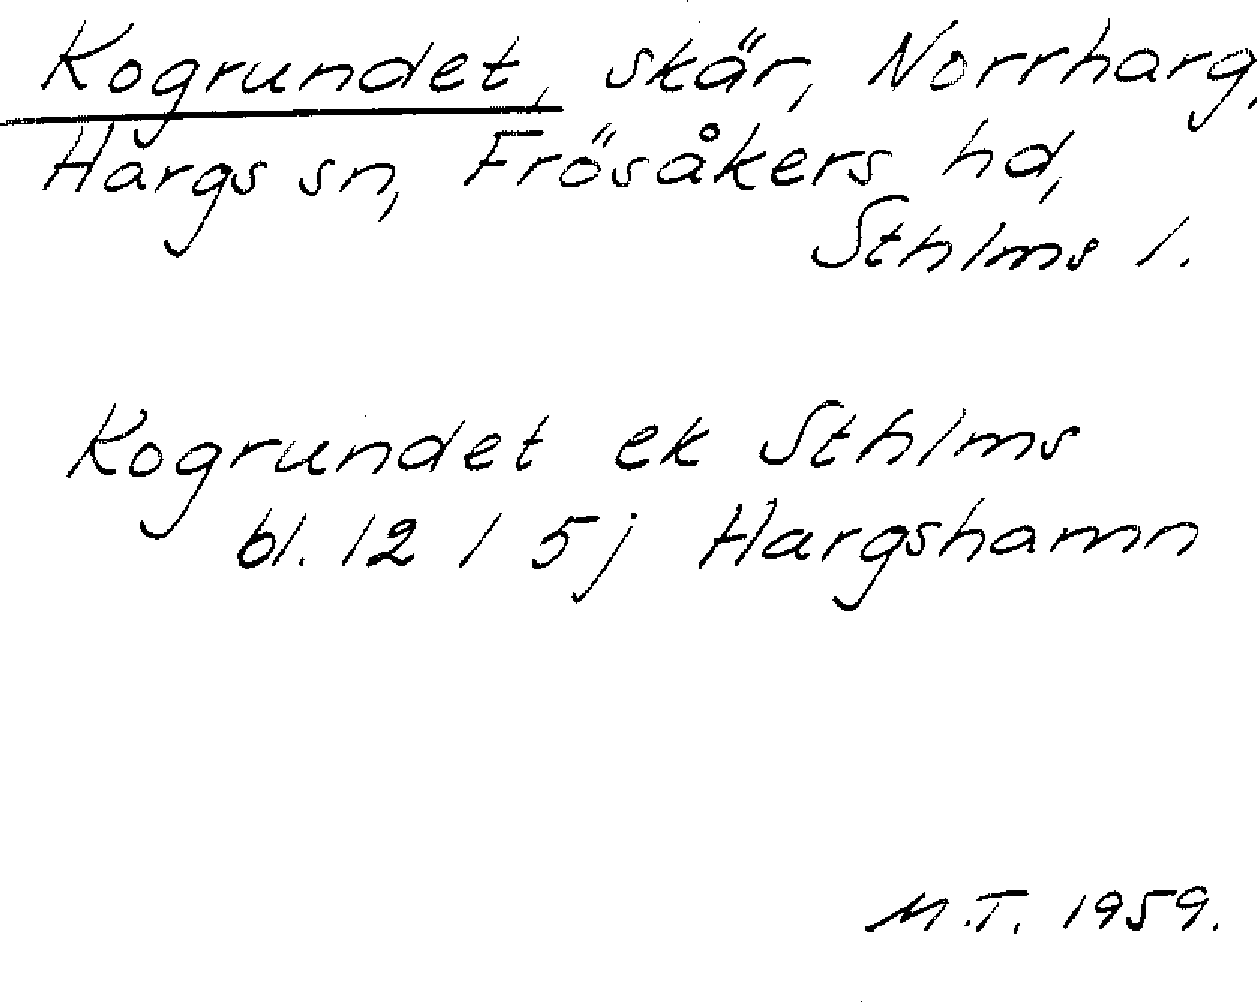 Kogrundet, skär, Norrharg,
Hargs sn, Frösåkers hd,
Sthlms l.
Kogrundet ek Sthlms
bl. 12 I 5j Hargshamn
M.T. 1959.